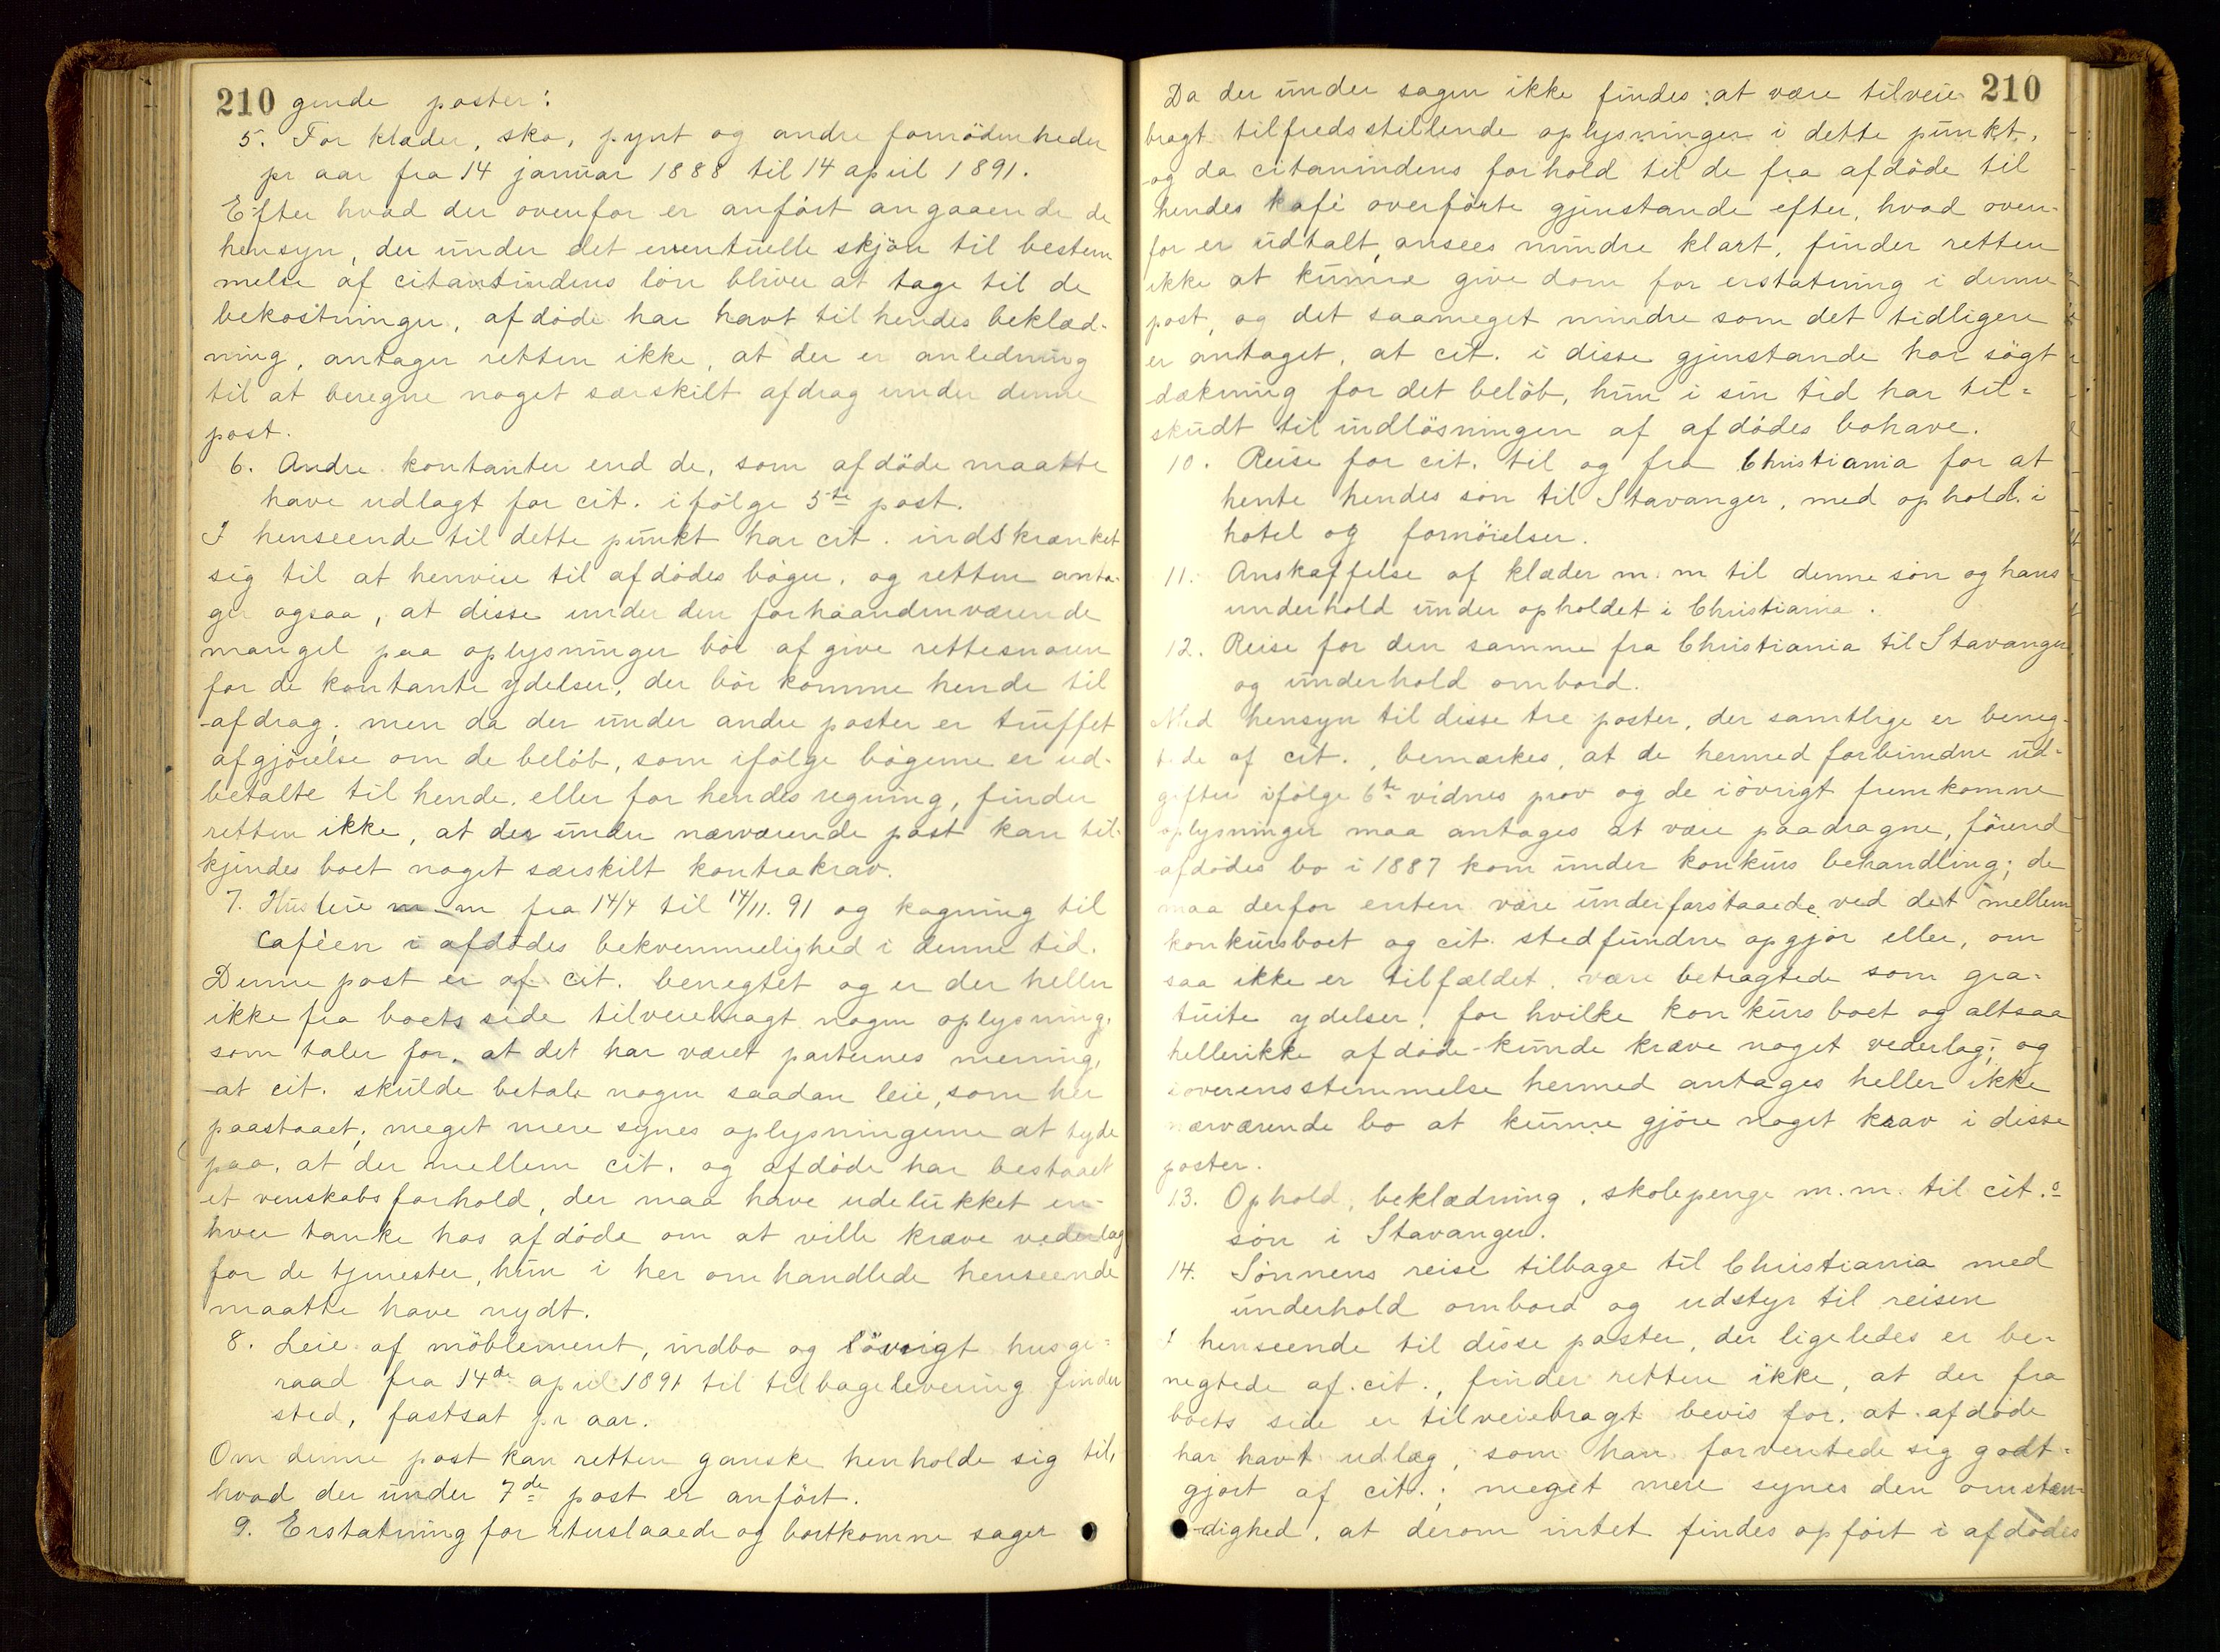 210 gende poster:
5. For klæder, sko, pynt og andre fornödenheder
pr aar fra 14 januar 1888 til 14 april 1891.
Efter hvad der ovenfor er anfört angaaende de
hensyn, der under det eventuelle skjön til bestem
melse af citantindens lön bliver at tage til de
bekostninger, afdöde har havt til hendes beklæd-
ning, antager retten ikke, at der er anledning
til at beregne noget særskilt afdrag under denne
post.
6. Andre kontanter end de, som afdöde maatte
have udlagt for cit. ifölge 5te post.
I henseende til dette punkt har cit. indskrænket
sig til at henvise til afdödes böger, og retten anta-
ger ogsaa, at disse under den forhaandenværende
mangel paa oplysninger bör afgive rettesnoren
for de kontante ydelser, der bör komme hende til
afdrag; men da der under andre poster er truffet
afgjörelse om de belöb, som ifölge bögerne er ud-
betalte til hende, eller for hendes regning, finder
retten ikke, at der under nærværende post kan til-
kjendes boet noget særskilt kontrakrav.
7. Husleie m m fra 14/4 til 14/11. 91 og kogning til
caféen i afdödes bekvemmelighed i denne tid.
Denne post er af cit. benegtet og er der heller
ikke fra boets side tilveiebragt nogen oplysning,
som taler for, at det har været parternes mening,
at cit. skulde betale nogen saadan leie, som her
paastaaet; meget mere synes oplysningerne at tyde
paa, at der mellem cit. og afdöde har bestaaet
et venskabsforhold, der maa have udelukket en-
hver tanke hos afdöde om at ville kræve vederlag
for de tjenester, hun i her omhandlede henseende
maatte have nydt.
8. Leie af möblement, indbo og iövrigt husge-
raad fra 14de april 1891 til tilbagelevering finder
sted, fastsat pr aar.
Om denne post kan retten ganske henholde sig til,
hvad der under 7de post er anfört.
9. Erstatning for ituslaaede og bortkomne sager
Da der under sagen ikke findes at være tilveie 210
bragt tilfredsstillende oplysninger i dette punkt,
og da citanindens forhold til de fra afdöde til
hendes kafé overförte gjenstande efter, hvad oven-
for er udtalt, ansees mindre klart, finder retten
ikke at kunne give dom for erstatning i denne
post, og det saameget mindre som det tidligere
er antaget, at cit. i disse gjenstande har sögt
dækning for det belöb, hun i sin tid har til-
skudt til indlösningen af afdödes bohave.
10. Reise for cit. til og fra Christiania for at
hente hendes sön til Stavanger, med ophold i
hotel og fornöielser.
11. Anskaffelse af klæder m. m til denne sön og hans
underhold under opholdet i Christiania.
12. Reise for den samme fra Christiania til Stavanger
og underhold ombord.
Med hensyn til disse tre poster, der samtlige er beneg-
tede af cit., bemærkes, at de hermed forbundne ud-
gifter ifölge 6te vidnes prov og de iövrigt fremkomne
oplysninger maa antages at være paadragne, förend
afdödes bo i 1887 kom under konkurs behandling; de
maa derfor enten være underforstaaede ved det mellem
konkursboet og cit. stedfundne opgjör eller, om
saa ikke er tilfældet, være betragtede som gra-
tuite ydelser, for hvilke konkursboet og altsaa
hellerikke afdöde kunde kræve noget vederlag; og
i overensstemmelse hermed antages heller ikke
nærværende bo at kunne gjöre noget krav i disse
poster.
13. Ophold, beklædning, skolepenge m. m. til cit.s
sön i Stavanger.
14. Sönnens reise tilbage til Christiania med
underhold ombord og udstyr til reisen
I henseende til disse poster, der ligeledes er be-
negtede af cit., finder retten ikke, at der fra
boets side er tilveiebragt bevis for, at afdöde
har havt udlæg, som han forventede sig godt-
gjort af cit.; meget mere synes den omstæn-
dighed, at derom intet findes opfört i afdödes